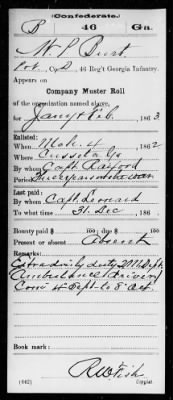 Confederate.
B 46 Ga.
W P Durst
Pvt. Co. D, 46 Reg't Georgia Infantry.
Appears on
Company Muster Roll
of the organization named above,
for Jany & Feb., 1863
Enlisted:
When Mch. 4, 1862
Where Cusseta Ga
By whom Capt.
Period
Last paid:
By whom Capt. Leonard
To what time 31 Dec, 186
Bounty paid $ 100; due $ 100
Present or absent Absent
Remarks:
Extra daily duty
Ambulance driver
Com 4 Sept to 8 Oct
Book mark:
R W Fish
(642) Copyist.